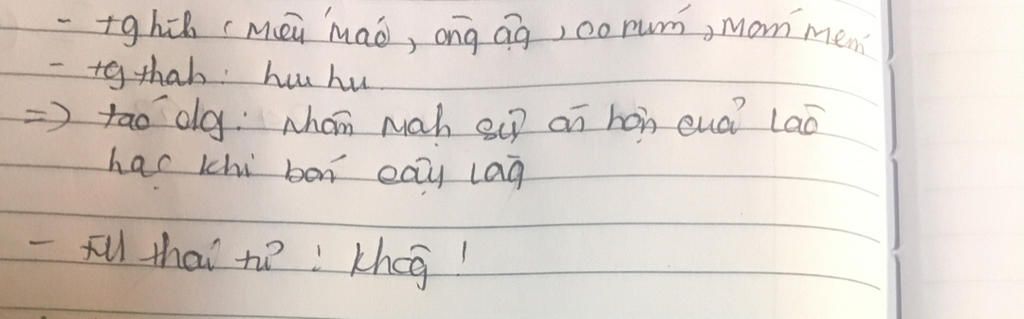 - tg hìh : Mếu máo, ầng ậg, co rúm, Móm mém
- tg thah : hu hu
=> tác dg : Nhấn Mạh sự ân hận của Lão
hạc khi bán cậu Vàg
- Tìh thái từ : Khôg !